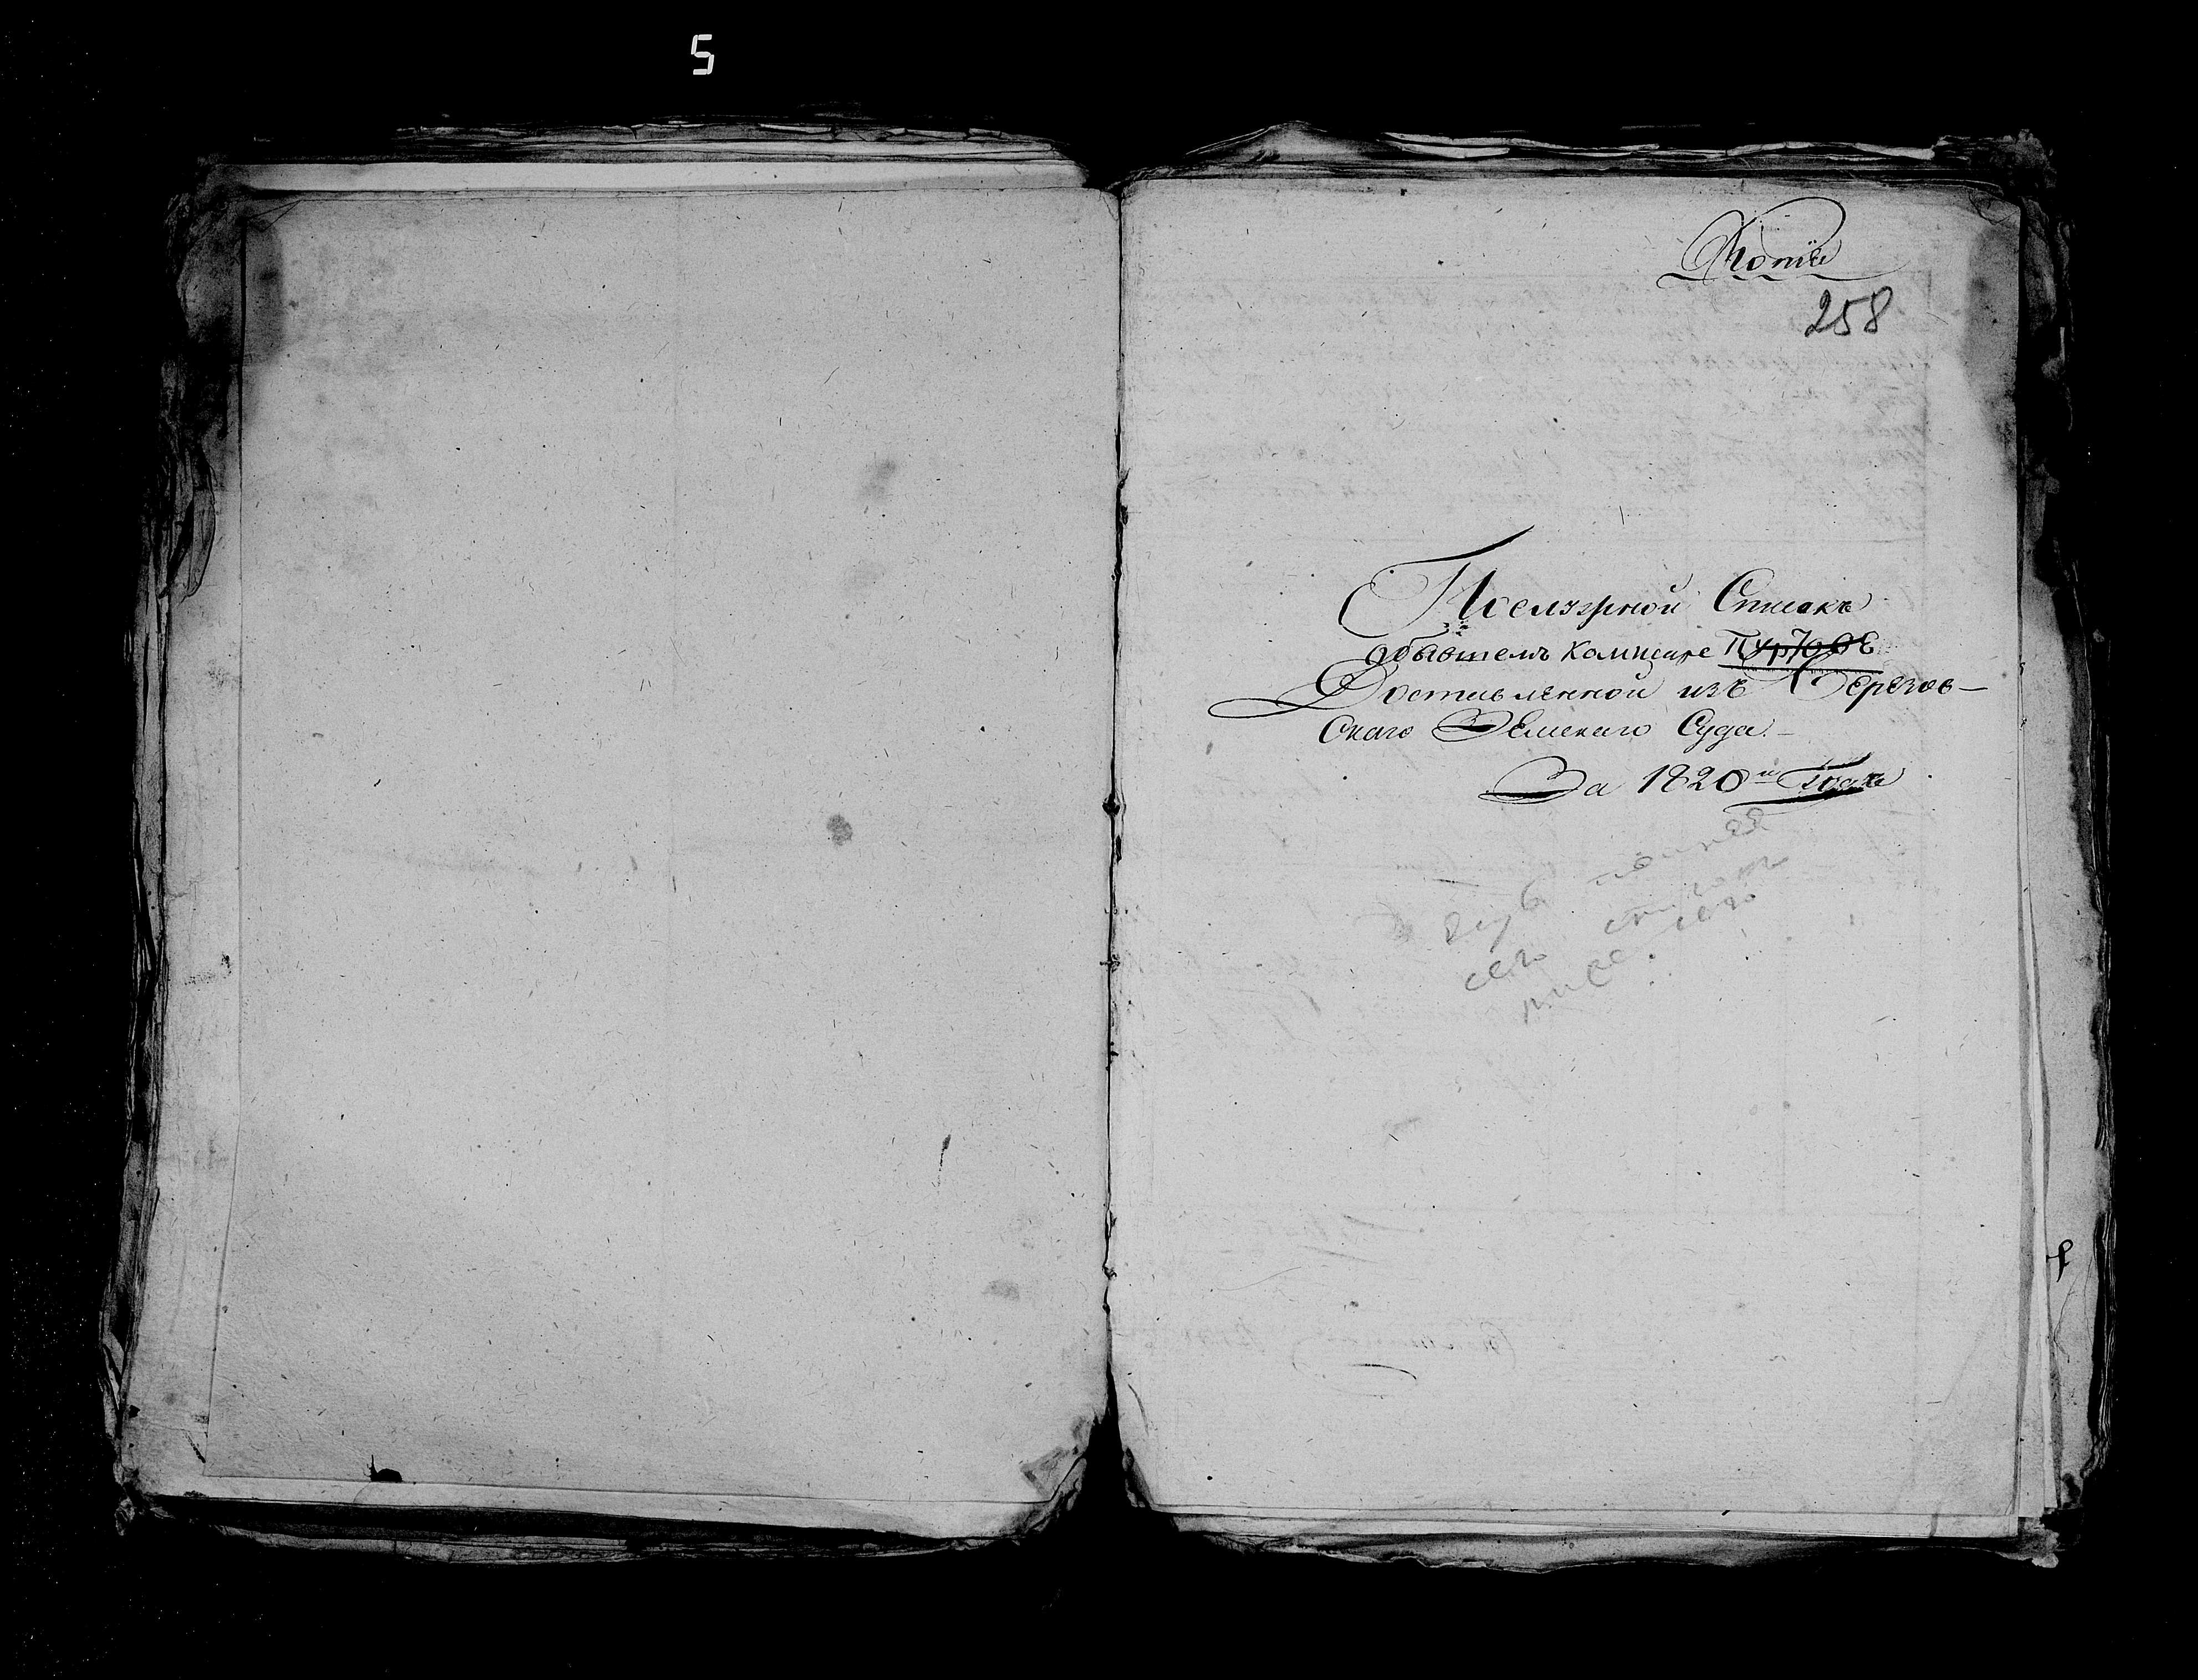 5
Копіи
258
Послужной Списокъ
обывшемъ комисаре Пуртове
Доставленной изъ Березов-
Скаго Земскаго Суда.-
За 1820й Годъ